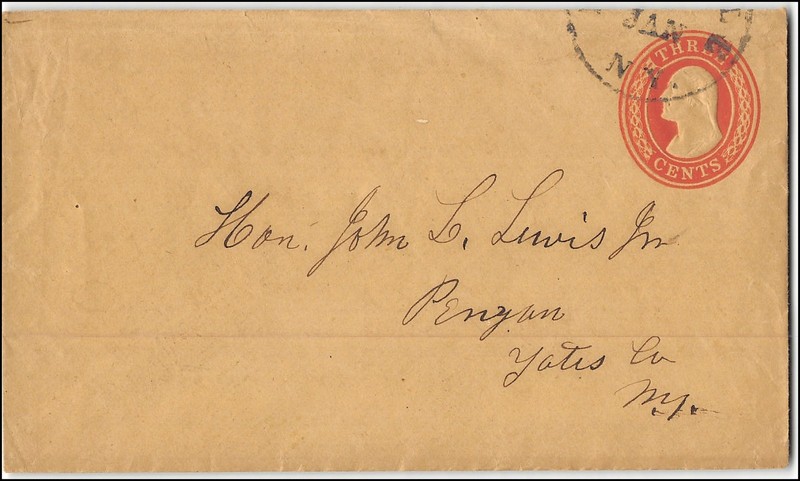 JAN
N.Y.
THREE
CENTS
Hon. John L. Lewis Jr
Penyan
Yates Co
N.Y.